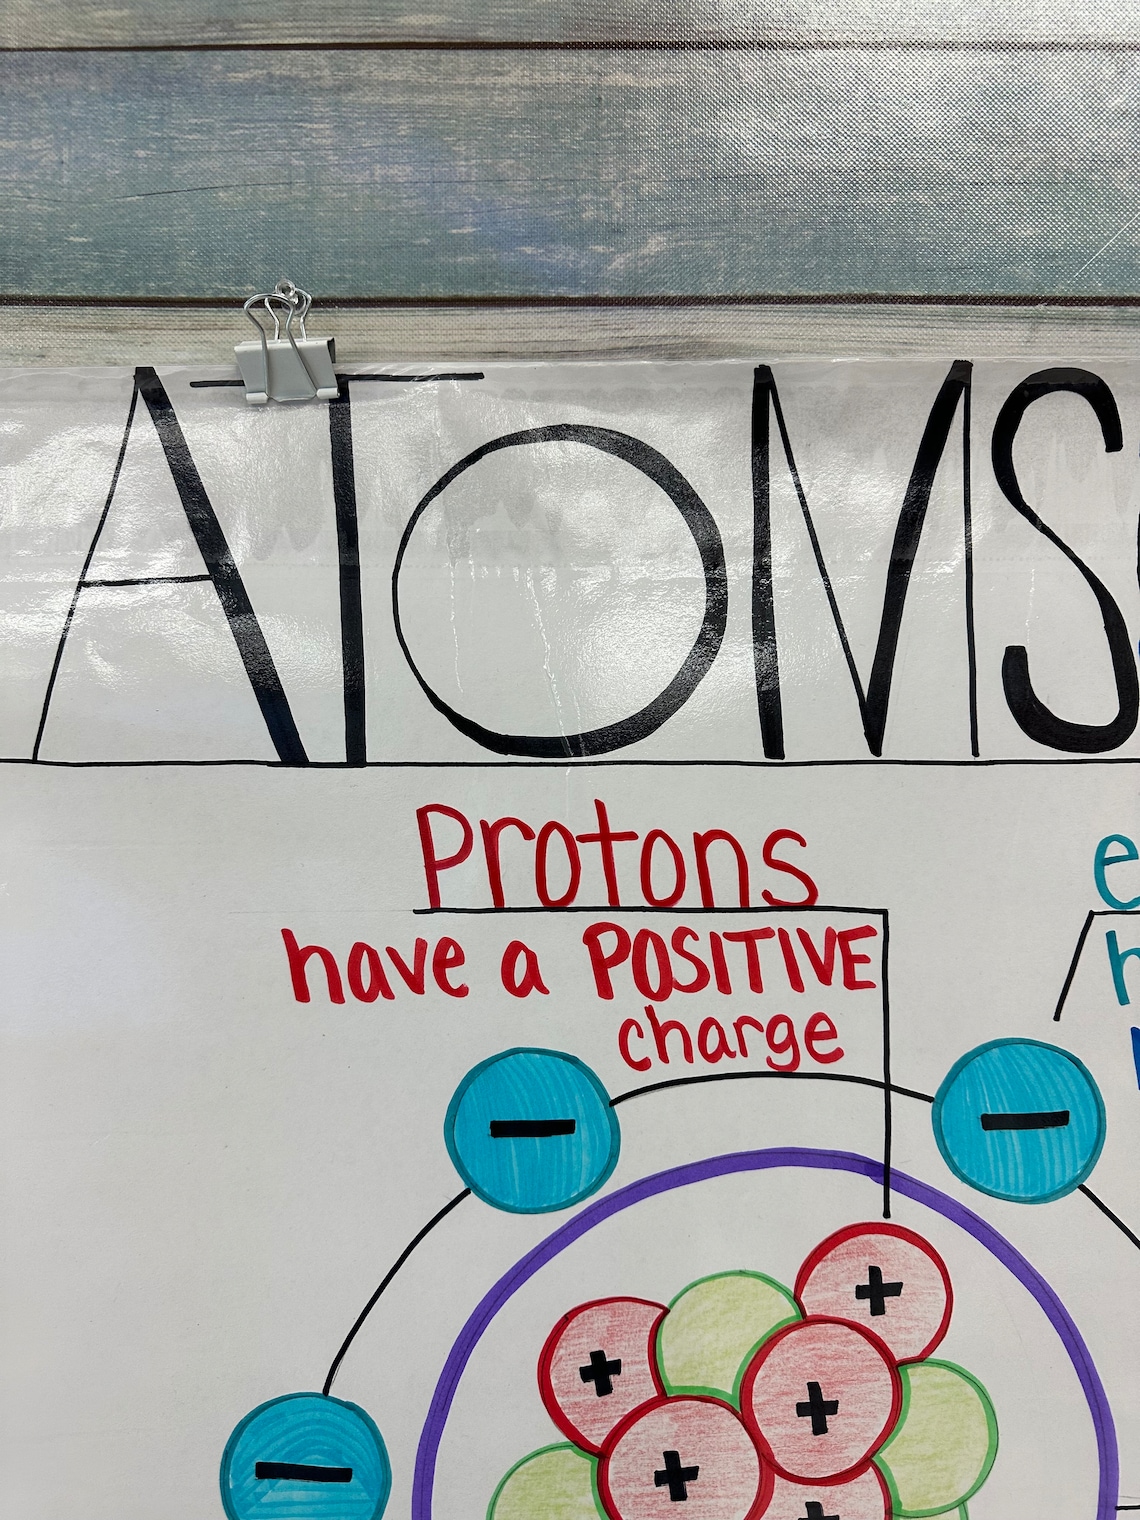 ATOMS
Protons
have a POSITIVE
charge
e
h
−
−
+
+
+
+
+
−